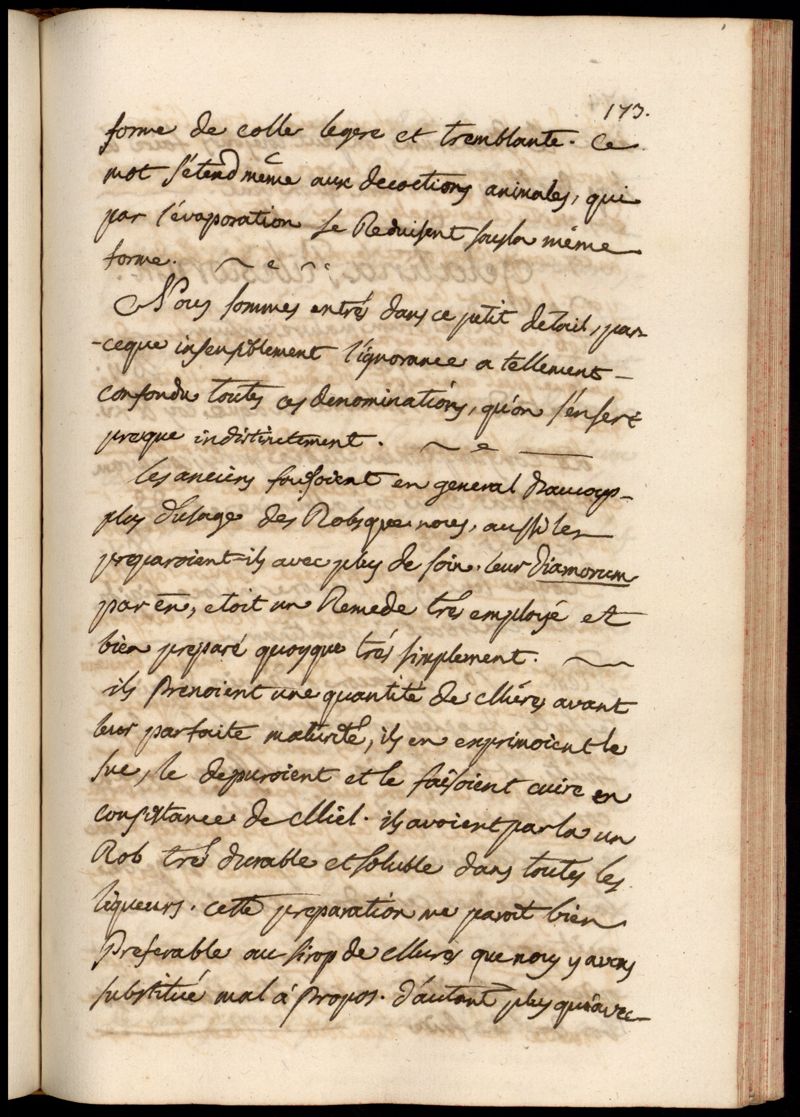 173.
forme de colle legere et tremblante. Ce
mot s'étend même aux decoctions animales, qui
par l'évaporation se Reduisent sous la même
forme.
Nous sommes entrés dans ce petit detail, par-
-ceque insensiblement l'ignorance a tellement
confondu toutes ces denominations, qu'on s'en sert
presque indistinctement.
les anciens faisoient en general beaucoup
plus d'usage des Robs que nous, aussi les
preparoient-ils avec plus de soin. leur diamorum
par en, etoit un Remede très employé et
bien preparé quoyque trés simplement.
ils Prenoient une quantité de Mûres avant
leur parfaite maturité, ils en exprimoient le
suc, le depuroient et le faisoient cuire en
consistance de Miel. ils avoient par la un
Rob très durable et soluble dans toutes les
liqueurs. cette preparation me paroit bien
Preferable au sirop de Mures que nous y avons
substitué mal à Propos. d'autant plus qu'avec